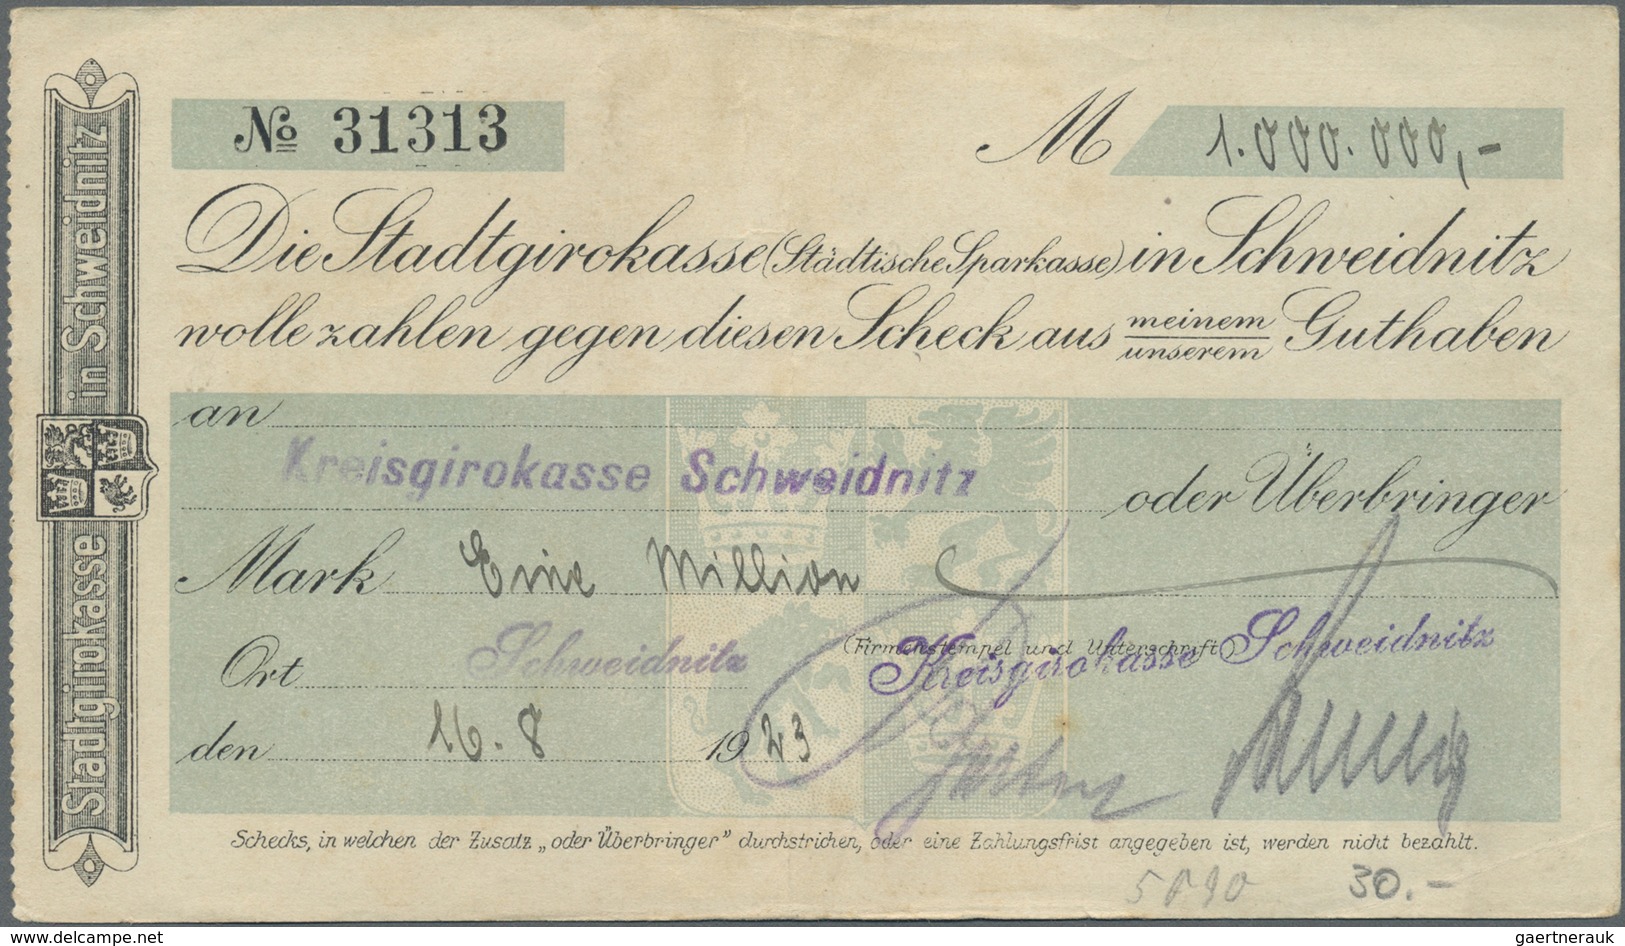 Stadtgirokasse in Schweidnitz
№ 31313
M 1.000.000,-
Die Stadtgirokasse (Städtische Sparkasse) in Schweidnitz
wolle zahlen gegen diesen Scheck aus meinem Guthaben
unserem
an
Kreisgirokasse Schweidnitz
oder Überbringer
Mark Eine Million
(Firmenstempel und Unterschrift)
Ort Schweidnitz
Kreisgirokasse Schweidnitz
den 16.8 1923
Schecks, in welchen der Zusatz „oder Überbringer" durchstrichen, oder eine Zahlungsfrist angegeben ist, werden nicht bezahlt.
30.-
delcampe.net
gaertnerauk